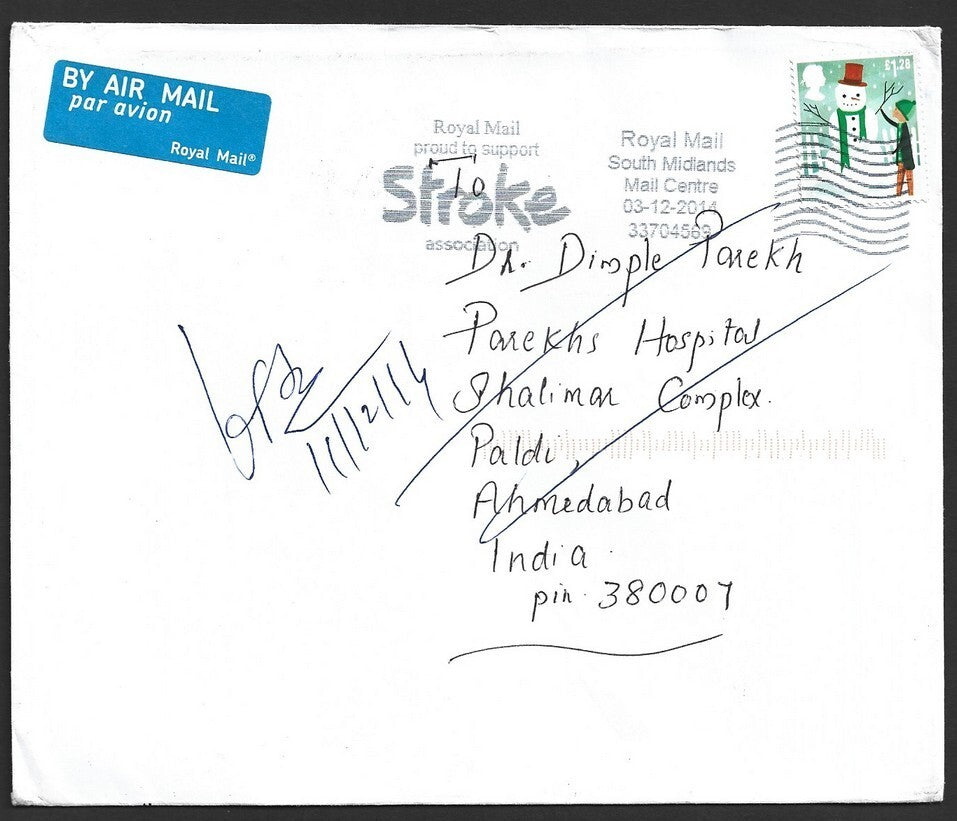 BY AIR MAIL
par avion
Royal Mail®
Royal Mail
proud to support
Stroke
association
Royal Mail
South Midlands
Mail Centre
03-12-2014
33704569
£1.28
To
Dr. Dimple Parekh
Parekhs Hospital
Shalimar Complex.
Paldi,
Ahmedabad
India.
pin. 380007
11/12/14